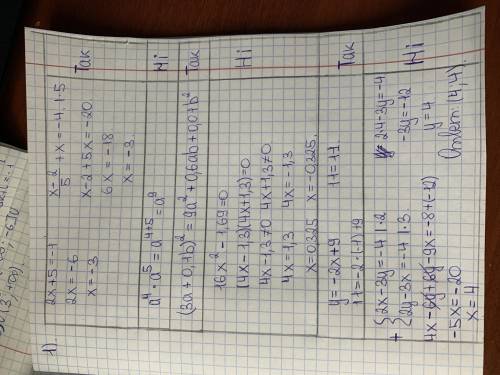 1).
2x+5=-1
2x=-6
x=-3
x-2/5 + x = -4 | ·5
x-2+5x=-20
6x=-18
x=-3.
Так
a⁴·a⁵=a⁴⁺⁵=a⁹
Ні
(3a+0,1b)²=9a²+0,6ab+0,01b²
Так
16x²-1,69=0
(4x-1,3)(4x+1,3)=0
4x-1,3=0 4x+1,3=0
4x=1,3 4x=-1,3
x=0.325 x=-0.325.
Ні
y=-2x+9
11=-2·(-1)+9
11=11.
Так
+ {2x-3y=-4 | ·2
{2y-3x=-4 | ·3
4x-6y+6y-9x=-8+(-12)
-5x=-20
x=4
2·4-3y=-4
-3y=-12
y=4
Ні